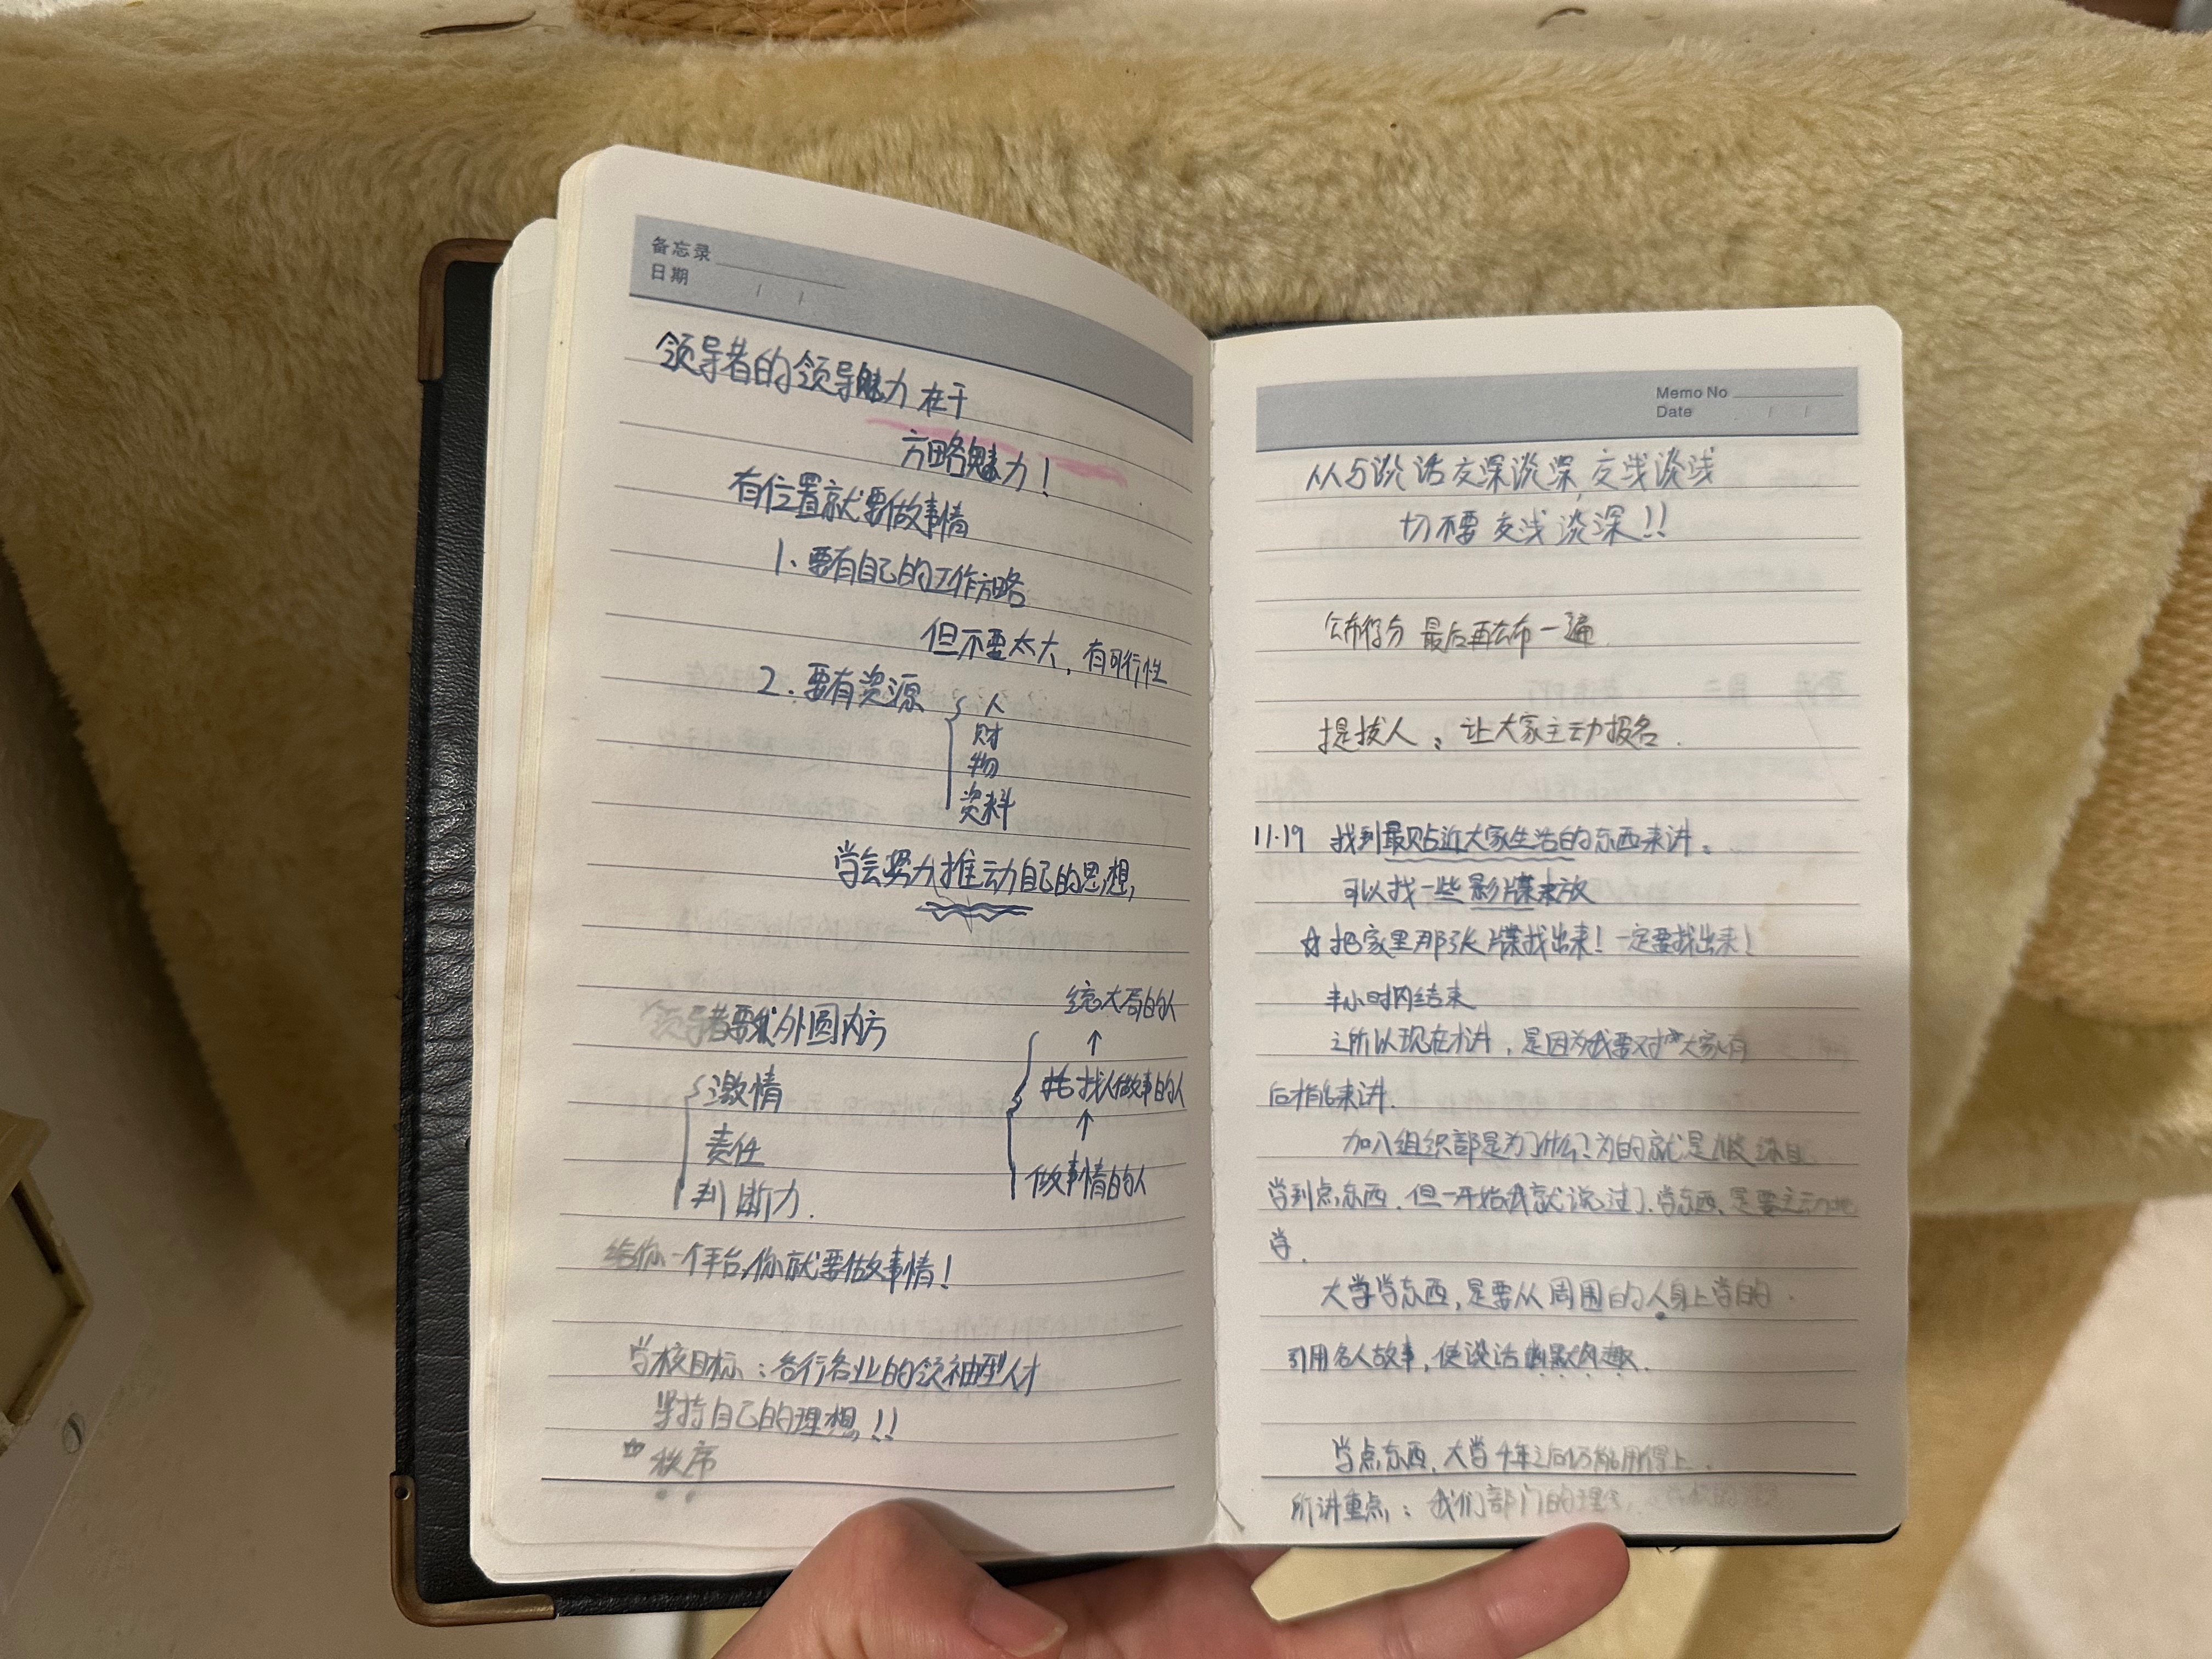 备忘录
日期 / /
领导者的领导魅力在于
方略魅力!
有位置就要做事情
1.要有自己的工作方略
但不要太大,有可行性
2.要有资源
人
财
物
资料
学会努力推动自己的思想,
领导者要外圆内方
激情
责任
判断力.
统大局的人
↑
找人做事的人
↑
做事情的人
给你一个平台,你就要做事情!
学校目标:各行各业的领袖型人才
坚持自己的理想!!
秩序
Memo No
Date / /
人与谈话交深谈深,交浅谈浅
切不要交浅谈深!!
公布得分 最后再公布一遍.
提拔人:让大家主动报名.
11.19 找到最贴近大家生活的东西来讲.
可以找一些影牒来放
☆把家里那张牒找出来!一定要找出来!
半小时内结束
之所以现在才讲,是因为我要对大家有
后才能来讲.
加入组织部是为了什么?为的就是
学到点东西.但一开始我就说过了,学东西,是要主动地
学.
大学学东西,是要从周围的人身上学的.
引用名人故事,使谈话幽默风趣.
学点东西,大学4年之后仍能用得上.
所讲重点:我们部门的理